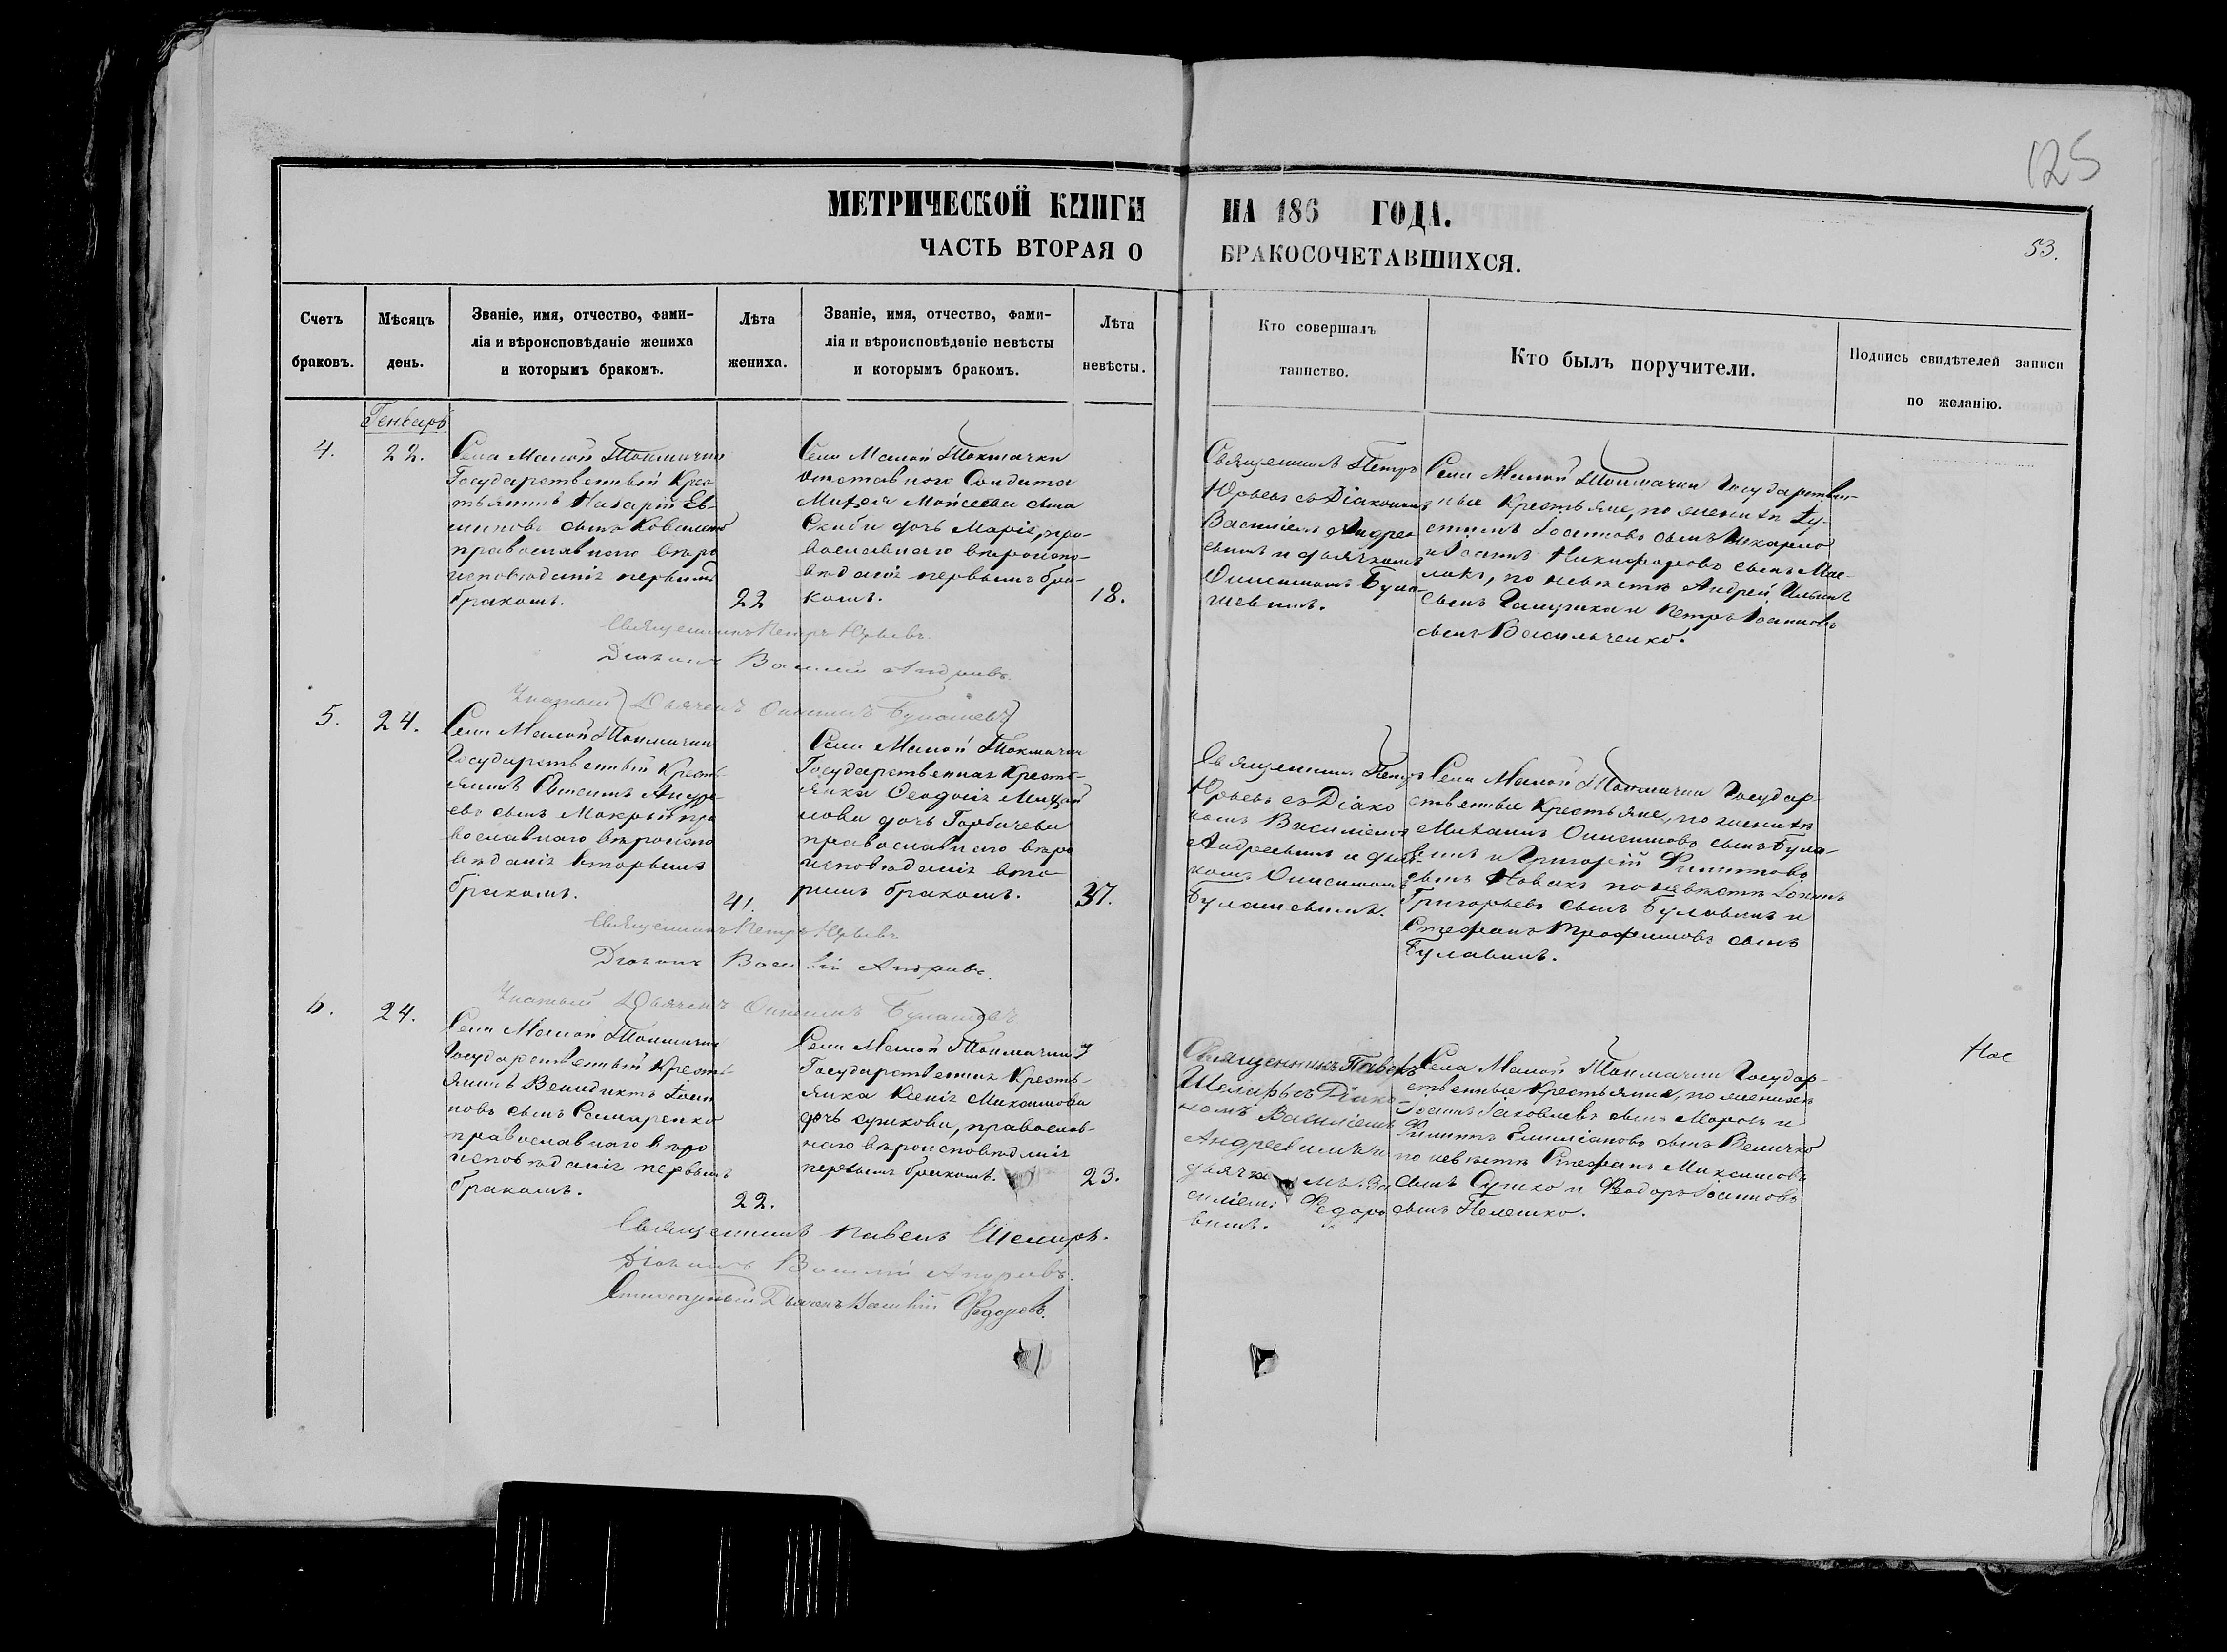 125
МЕТРИЧЕСКОЙ КНИГИ НА 186 ГОДА.
ЧАСТЬ ВТОРАЯ О БРАКОСОЧЕТАВШИХСЯ.
53.
Счетъ браковъ.
Мѣсяцъ день.
Званіе, имя, отчество, фами-
лія и вѣроисповѣданіе жениха
и которымъ бракомъ.
Лѣта жениха.
Званіе, имя, отчество, фами-
лія и вѣроисповѣданіе невѣсты
и которымъ бракомъ.
Лѣта невѣсты.
Кто совершалъ
таинство.
Кто былъ поручители.
Подпись свидѣтелей записи
по желанію.
Генварь
4.
22.
Села Малой Токмачки
Государственный Крес
тьянинъ Назарій Ев-
сынъ Коваленко
православнаго вѣро
исповѣданія первымъ
бракомъ.
22
Села Малой Токмачки
отставнаго Солдата
Моѵсеева сына
Скиби дочь Марія, пра-
вославнаго вѣроиспо-
вѣданія первымъ бра-
комъ.
18.
Священникъ Петръ
Юрьевъ съ Діакономъ
Василіемъ Андрее
вымъ и дьячкомъ
Онисимомъ Була-
шевымъ.
Села Малой Токмачки Государствен-
ные Крестьяне, по женихѣ
Іоанновъ сынъ
и Іоаннъ Никифоровъ сынъ Мас-
лакъ, по невѣстѣ Андрей Ильинъ
сынъ и Петръ Іоанновъ
сынъ Васильченко.
Священникъ Петръ Юрьевъ
Діаконъ Василій Андреевъ.
Дьячекъ Онисимъ Булашевъ
5.
24.
Села Малой Токмачки
Государственный Кресть-
янинъ Андре-
евъ сынъ Мокрый пра
вославнаго вѣроиспо
вѣданія вторымъ
бракомъ.
41.
Села Малой Токмачки
Государственная Кресть-
янка Ѳеодосія Михай
лова дочь Горбачева
православнаго вѣро
исповѣданія вто-
рымъ бракомъ.
37.
Священникъ Петръ
Юрьевъ съ Діако
номъ Василіемъ
Андреевымъ и дьяч-
комъ Онисимомъ
Булашевымъ.
Села Малой Токмачки Государ-
ственные Крестьяне, по женихѣ
Михаилъ Онисимовъ сынъ Була-
винъ и Григорій Филиповъ
сынъ Новакъ по невѣстѣ Іоаннъ
Григорьевъ сынъ Булавинъ и
Стефанъ Трофимовъ сынъ
Булавинъ.
Священникъ Петръ Юрьевъ
Діаконъ Василій Андреевъ.
Дьячекъ Онисимъ Булашевъ
6.
24.
Села Малой Токмачки
Государственный Кресть-
янинъ Венидиктъ Іоан
новъ сынъ Самаренко
православнаго вѣро
исповѣданія первымъ
бракомъ.
22.
Села Малой Токмачки
Государственная Кресть-
янка Ксенія Максимова
дочь православ-
наго вѣроисповѣданія
первымъ бракомъ.
23.
Священникъ Павелъ
Шемиръ съ Діако-
номъ Василіемъ
Андреевымъ и
дьячкомъ Ва
силіемъ Федоро
вымъ.
Села Малой Токмачки Государ-
ственные Крестьяне, по женихѣ
Іоаннъ Іаковлевъ сынъ Морозъ и
Филипъ Емиліановъ сынъ Величко
по невѣстѣ Стефанъ Максимовъ
сынъ и Феодоръ Іоанновъ
сынъ Пелешко.
Священникъ Павелъ Шемиръ.
Діаконъ Василій Андреевъ.
Дьячекъ Василій Федоровъ.